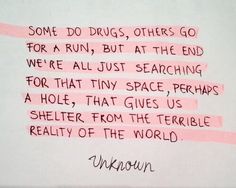 SOME DO DRUGS, OTHERS GO
FOR A RUN, BUT AT THE END
WE'RE ALL JUST SEARCHING
FOR THAT TINY SPACE, PERHAPS
A HOLE, THAT GIVES US
SHELTER FROM THE TERRIBLE
REALITY OF THE WORLD.
Unknown